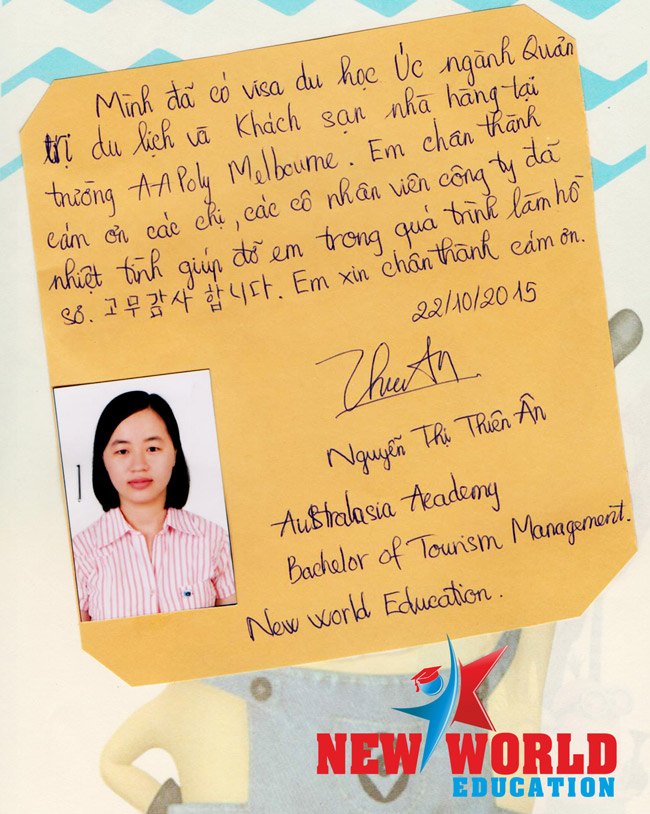 Mình đã có visa du học Úc ngành Quản
trị du lịch và Khách sạn nhà hàng tại
trường AAPoly Melbourne. Em chân thành
cám ơn các chị, các cô nhân viên công ty đã
nhiệt tình giúp đỡ em trong quá trình làm hồ
sơ. 고무감사 합니다. Em xin chân thành cám ơn.
22/10/2015
Thiên Ân
Nguyễn Thị Thiên Ân
Australasia Academy
Bachelor of Tourism Management.
New world Education.
NEW WORLD
EDUCATION